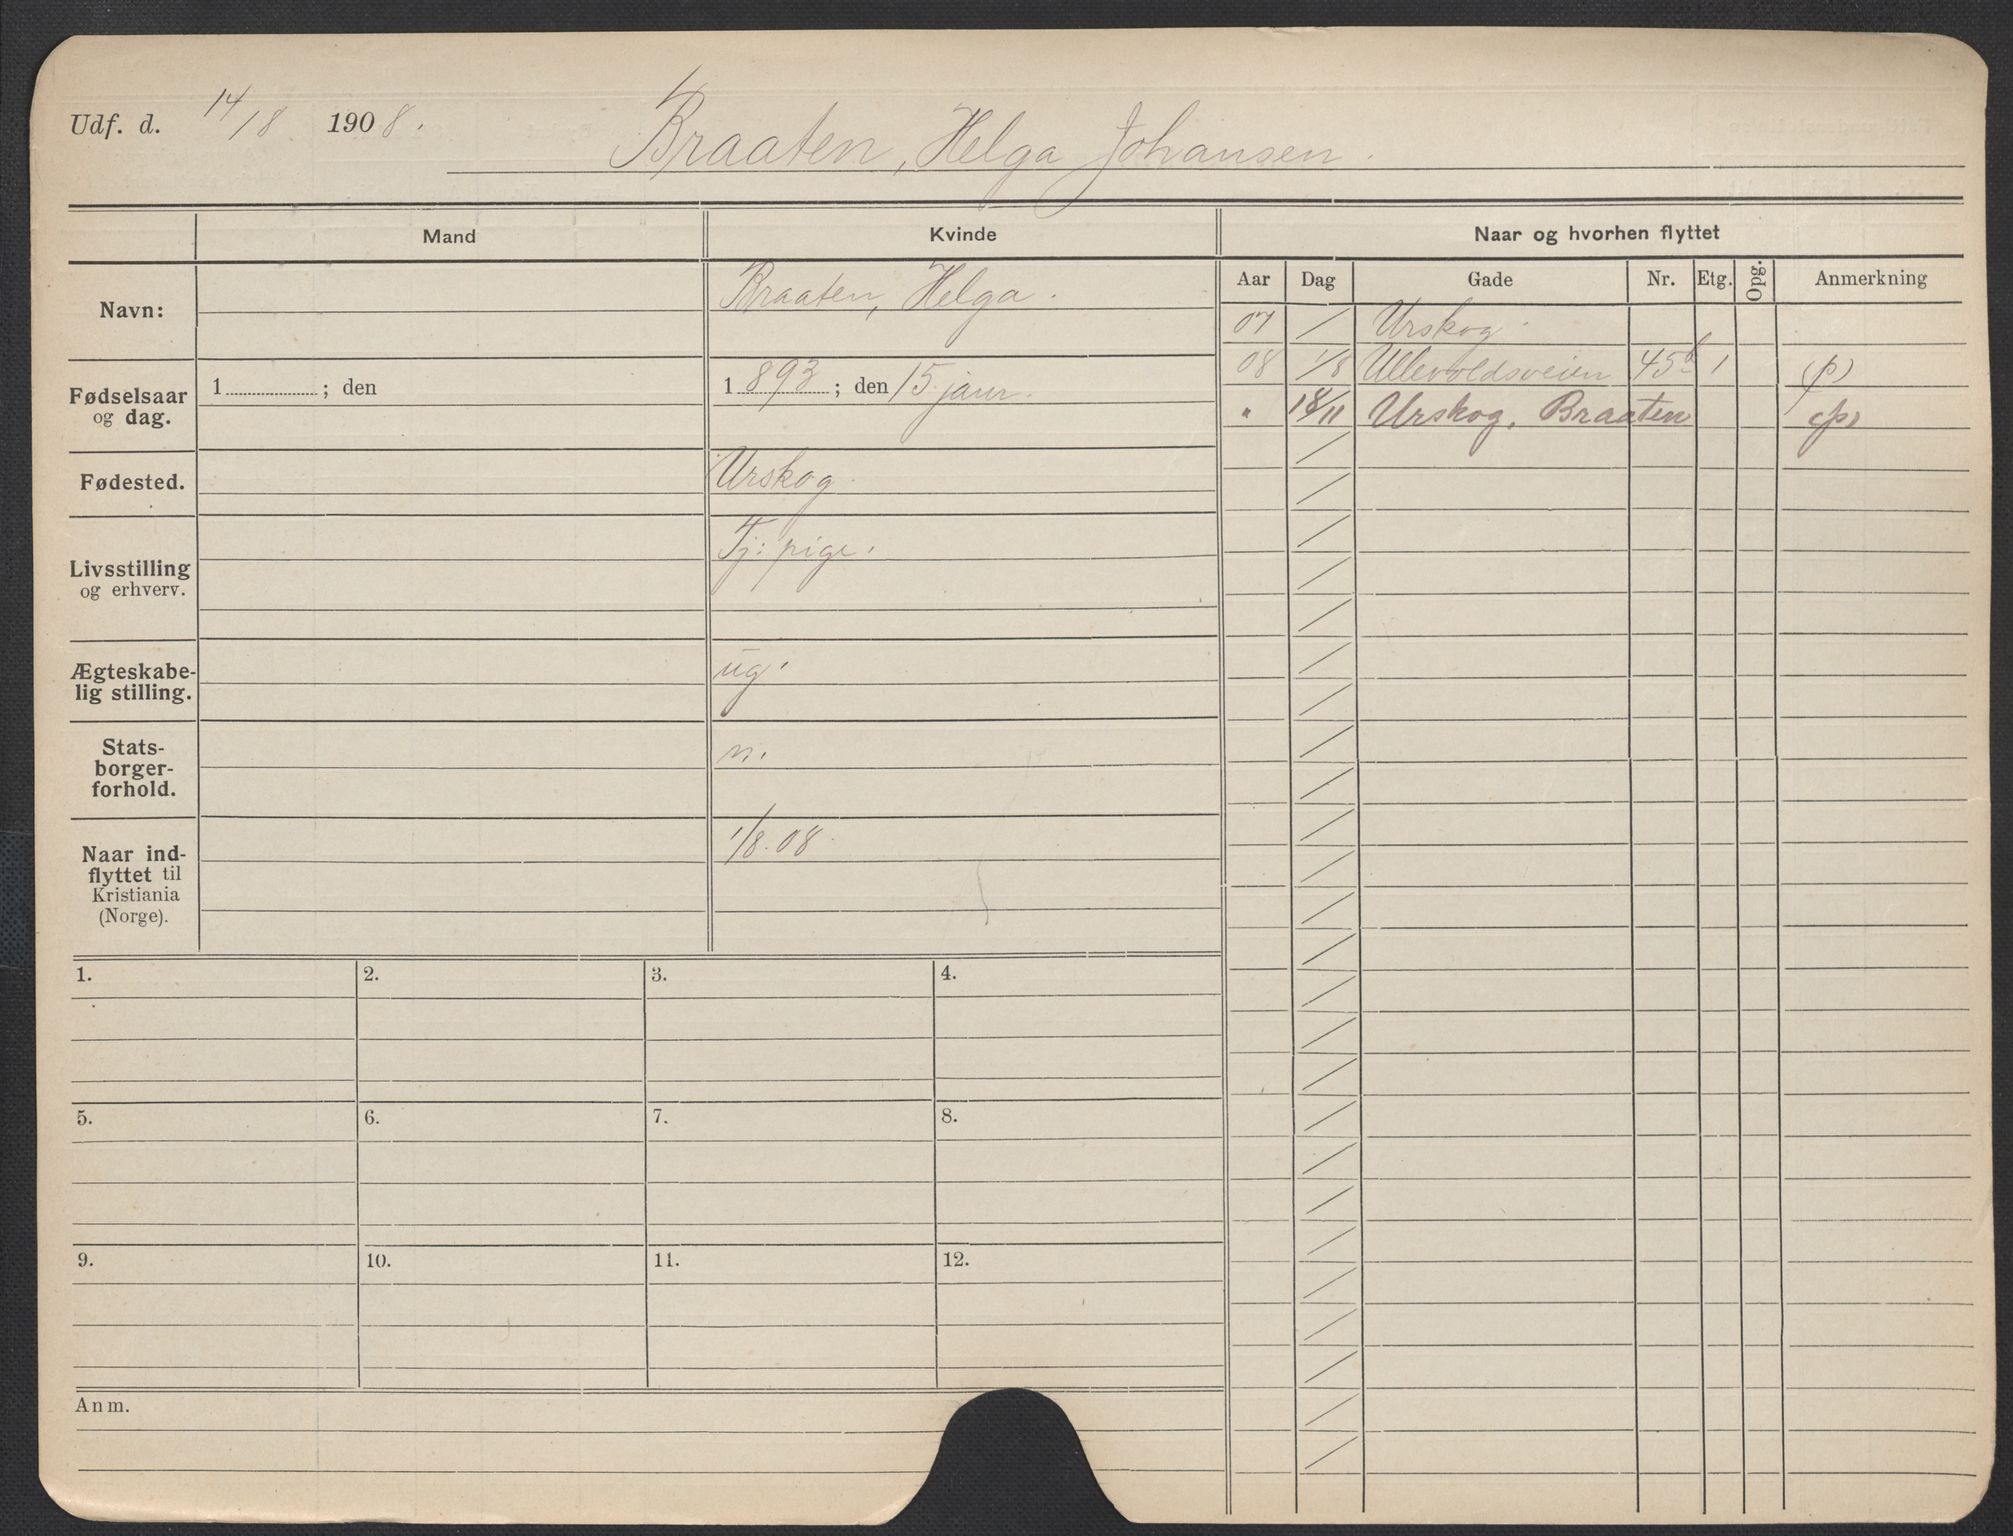 Udf. d. 14/8 1908.
Braaten, Helga Johansen.
Mand Kvinde Naar og hvorhen flyttet
Aar Dag Gade Nr. Etg. Opg. Anmerkning
Navn: Braaten, Helga.
07 / Urskog.
08 1/8 Ullevoldsveien 45b 1 (p)
" 18/11 Urskog, Braaten (p)
Fødselsaar og dag. 1 ; den 1 893 ; den 15. janr.
Fødested. Urskog.
Livsstilling og erhverv. Tj: pige.
Ægteskabe-
lig stilling. ug.
Stats-
borger-
forhold. n.
Naar ind-
flyttet til
Kristiania
(Norge). 1/8. 08
1. 2. 3. 4.
5. 6. 7. 8.
9. 10. 11. 12.
Anm.